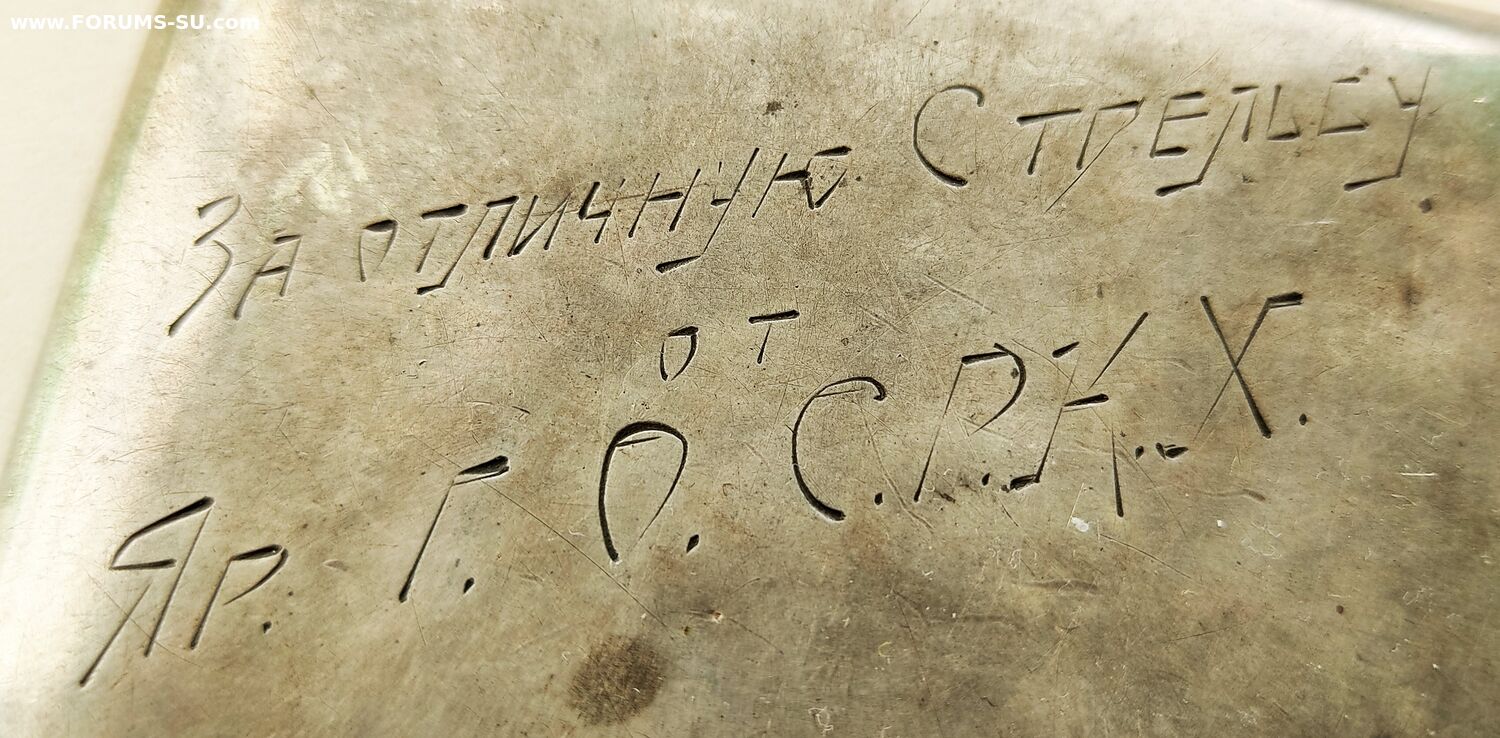 www.FORUMS-SU.com
За отличную Стрельбу
от
Яр. Г. О. С. Р. К. Х.